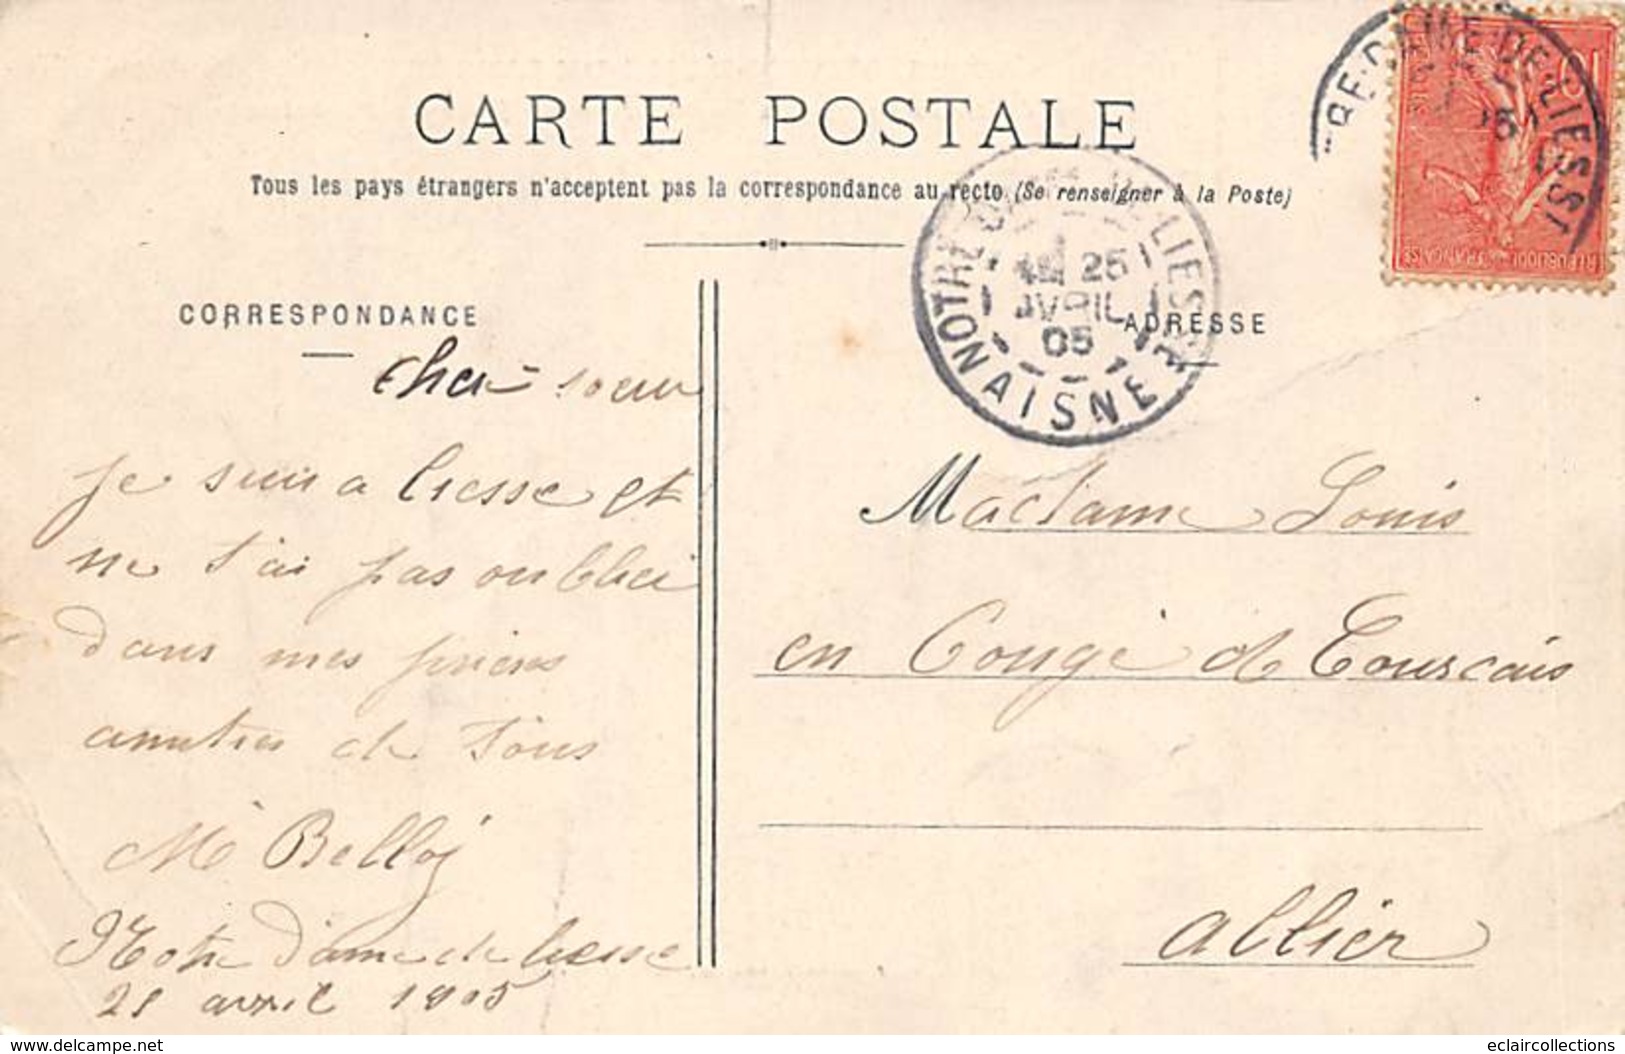 CARTE POSTALE
Tous les pays étrangers n'acceptent pas la correspondance au recto (Se renseigner à la Poste)
NOTRE-DAME-DE-LIESSE
AISNE
25
AVRIL
05
RE-DAME-DE-LIESSE
10
REPUBLIQUE FRANÇAISE
CORRESPONDANCE
ADRESSE
soeur
je suis a liesse et
ne t'ai pas oubliei
dans mes prieres
de tous
M Belloy
Notre Dame de liesse
25 avril 1905
Madame Louis
en Congé de Tourcais
allier
delcampe.net
eclaircollections